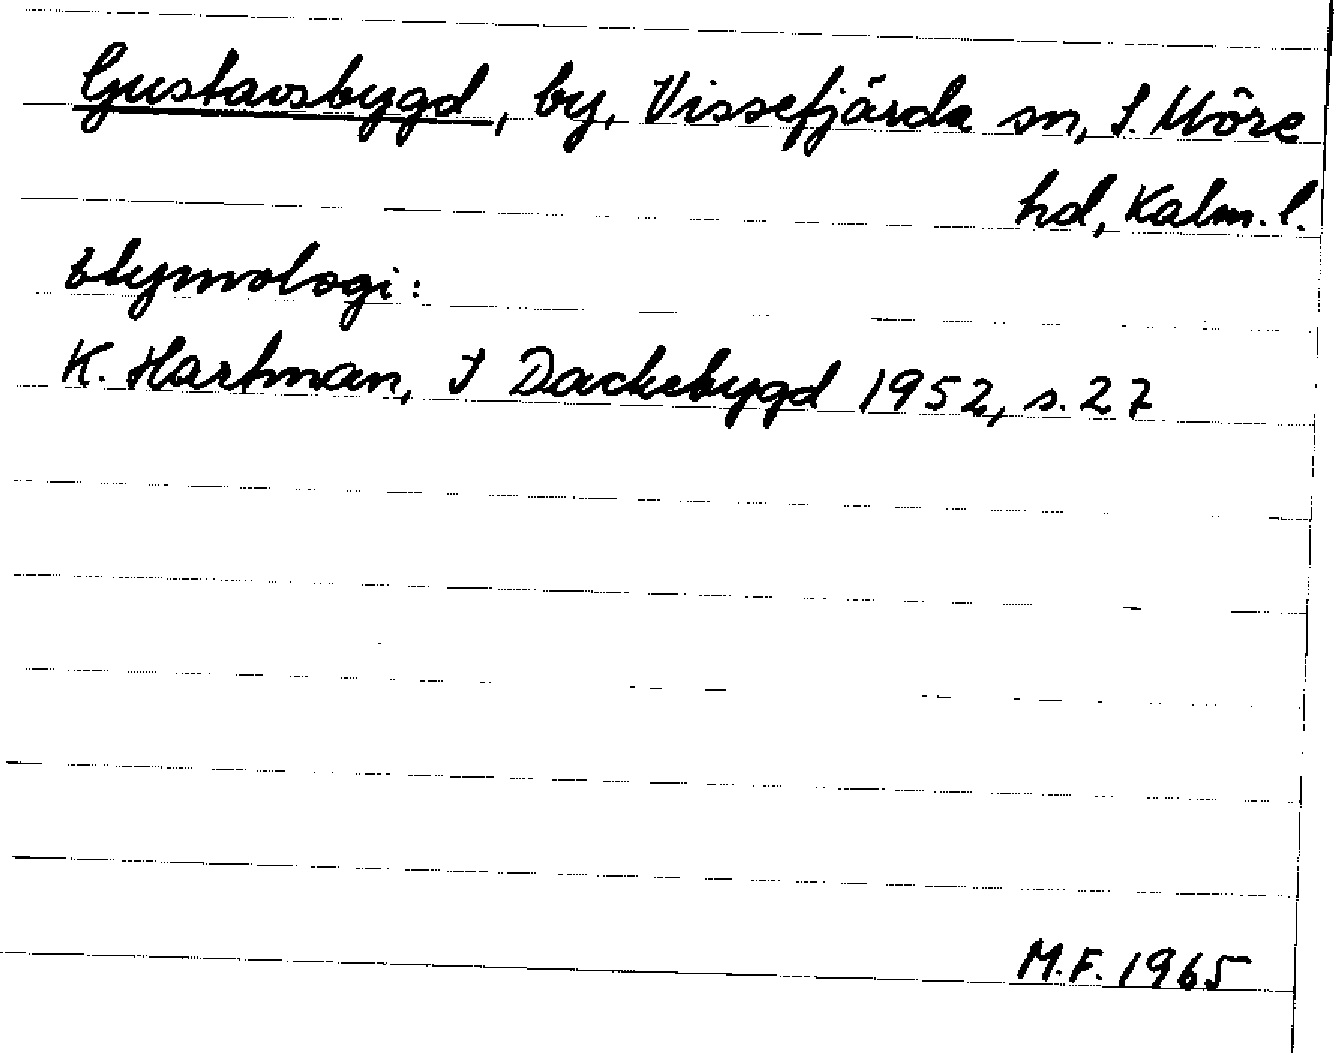 Gustavsbygd, by, Vissefjärda sn, S. Möre
hd, Kalm. l.
Etymologi:
K. Hartman, I Dackebygd 1952, s. 27
M.F. 1965